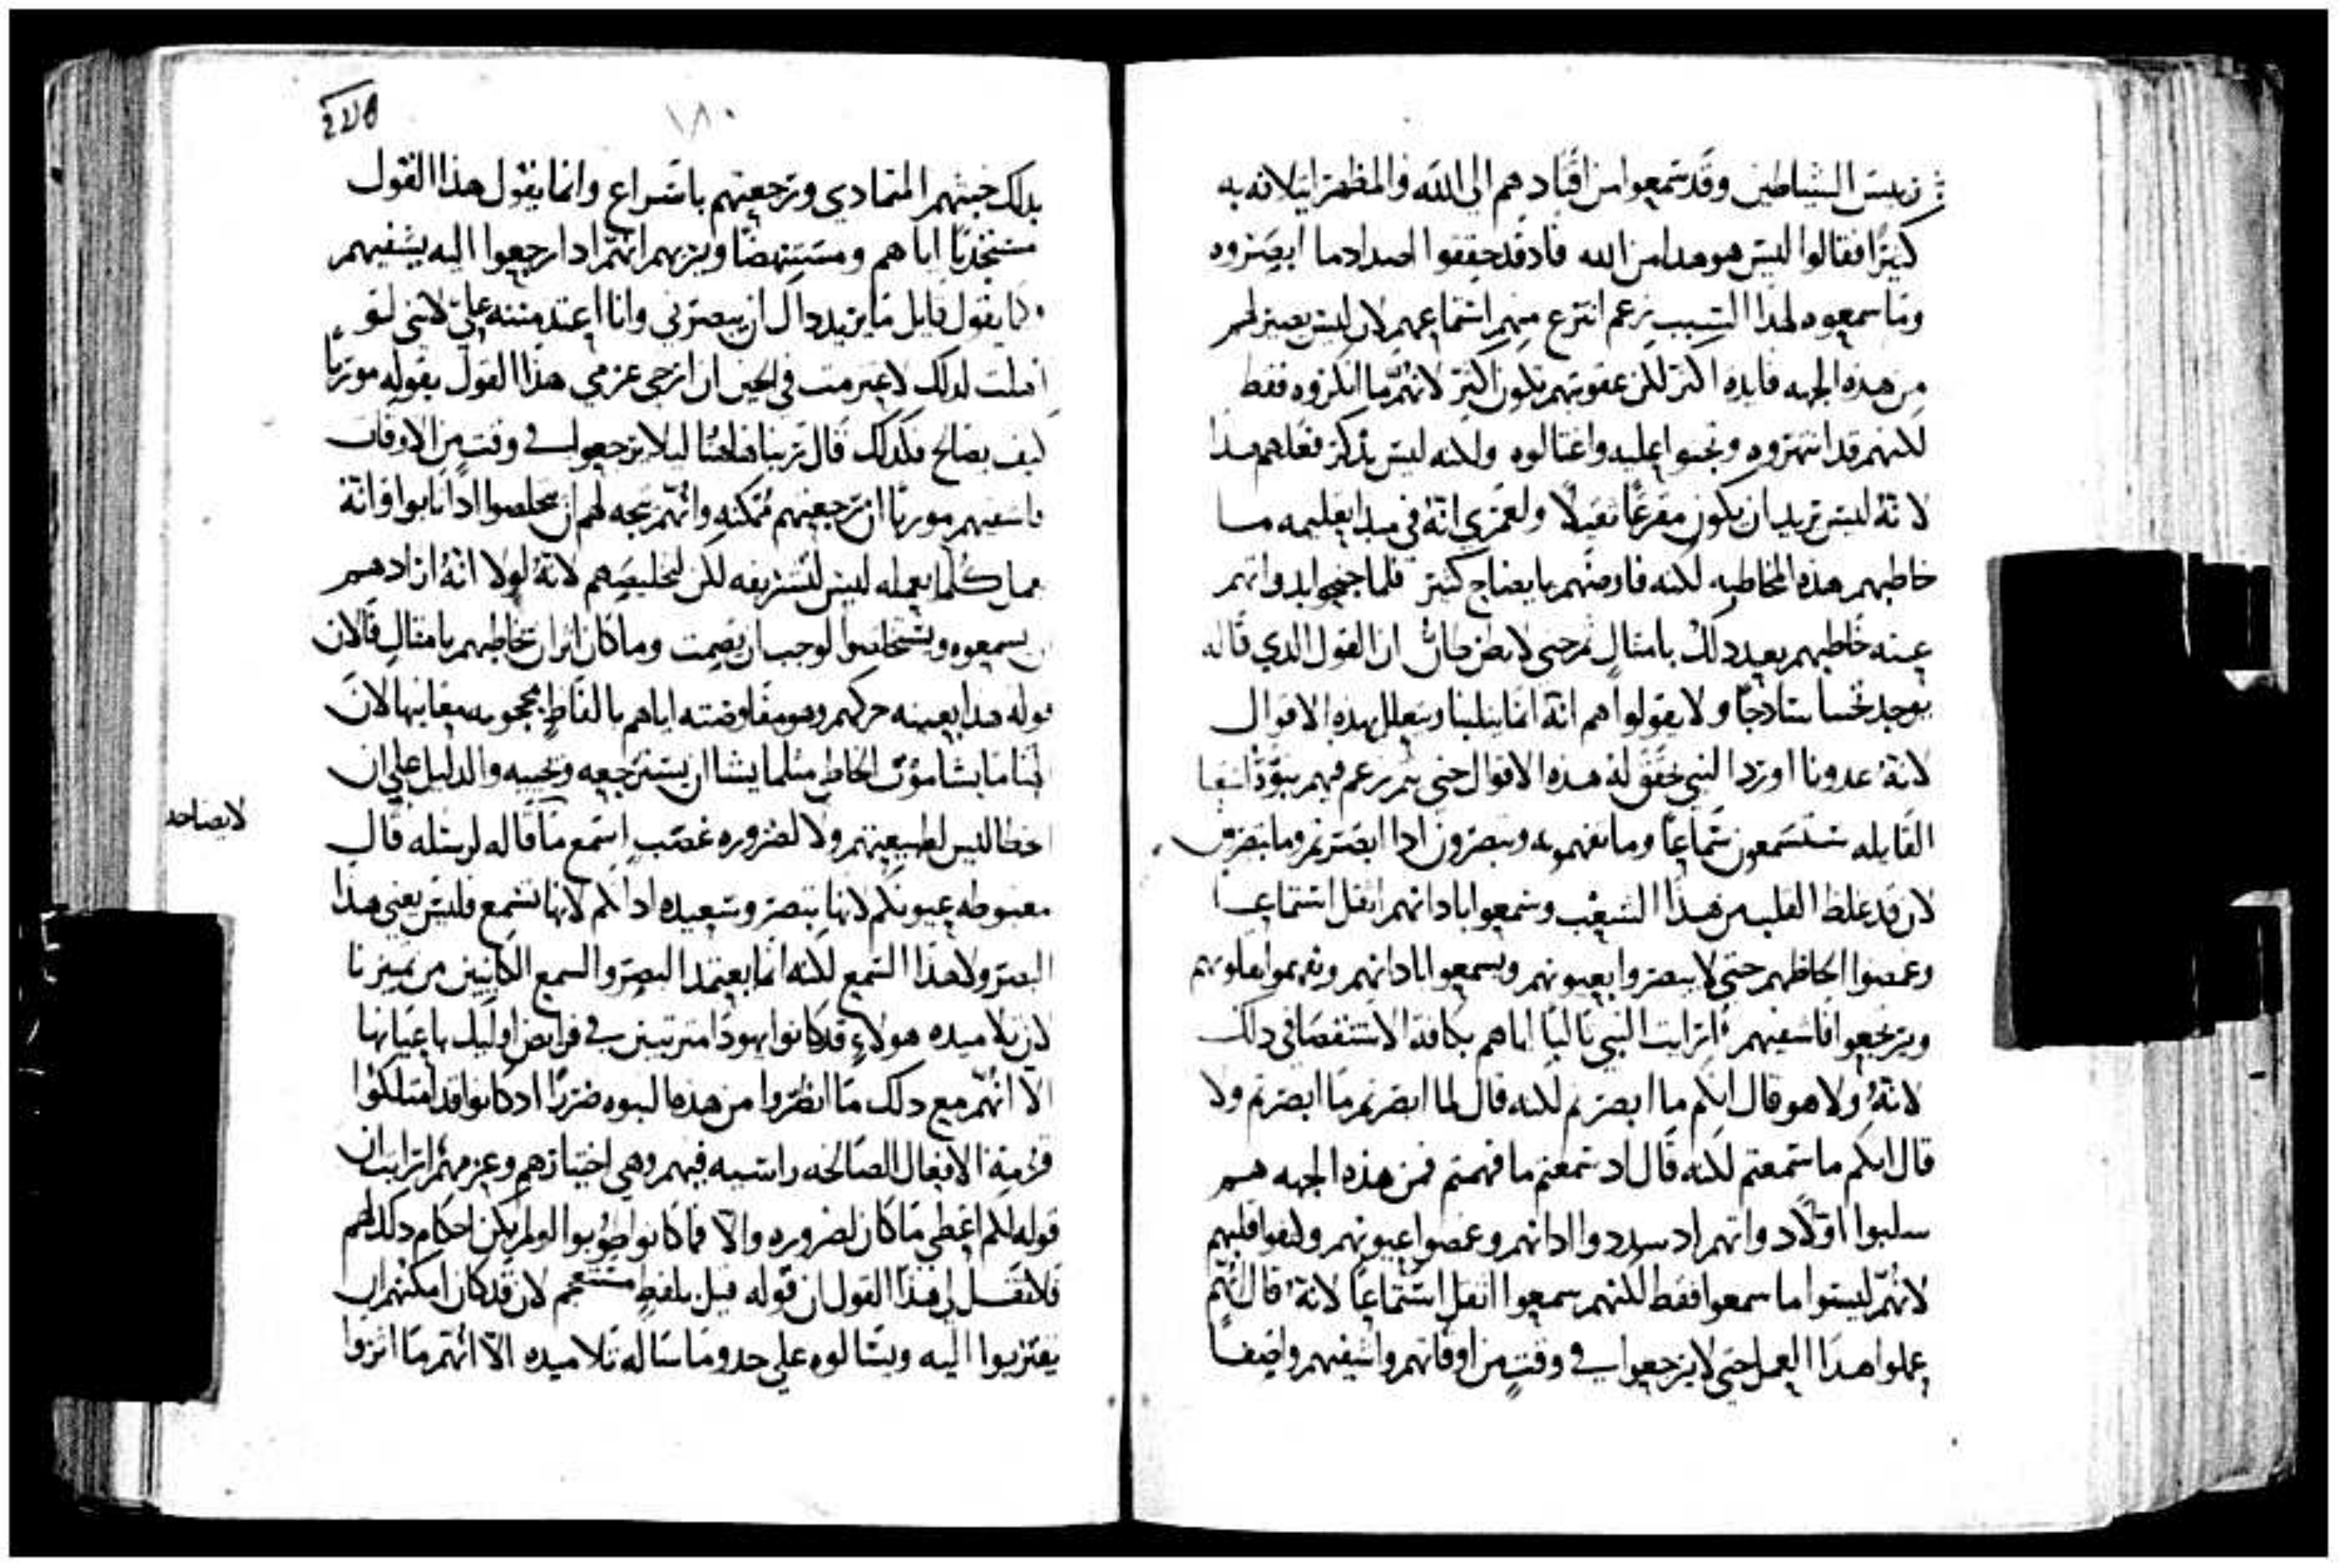 رييس الشياطين وقد سمعوا من اقتادهم الى الله والمظهر ايتلافه به
كثيرًا فقالوا ليس هو هدا من الله فادقد حققوا اصداد ما ابصروه
وما سمعوه لهدا السبب زعم انتزع منهم استماعهم لان ليس يصير لهم
من هده الجهه فايده اكتر لكن عقوبتهم تكون اكتر لانهم ما انكروه فقط
لكنهم قد انتهروه وتجنوا عليه واغتالوه ولكنه ليس يدكر فعلهم هدا
لانه ليس يريد ان يكون مقرعًا تقيلًا ولعمري انه في مبدا تعليمه ما
خاطبهم هذه المخاطبه لكنه فاوضهم بايضاح كتير فلما جنحوا بدواتهم
عنه خاطبهم بعد دلك بامتال ثم حتى لا يظن ظان ان القول الدي قاله
يوجد تجنسا ساذجًا ولا يقولوا هم انه انما يثلبنا ويتعلل بهده الاقوال
لانه عدونا اورد النبي محقق له هده الاقوال حتى تم زعم فيهم نبوة اشعيا
القايله ستسمعون سماعًا وما تفهمونه وتبصرون ادا ابصرتم وما تبصرون
لان قد غلظ القلب من هدا الشعب وسمعوا باداتهم اتقل استماعا
وغمضوا الحاظهم حتى لا يبصروا بعيونهم ويسمعوا باداتهم ويفهموا بقلوبهم
ويرجعوا فاشفيهم ارايت النبي ثالبًا اياهم بكافة الاستقصا في دلك
لانه ولا هو قال انكم ما ابصرتم لكنه قال لما ابصرتم ما ابصرتم ولا
قال انكم ما سمعتم لكنه قال اد سمعتم ما فهمتم فمن هذه الجهه هم
سلبوا اولًا دواتهم اد سددوا ادانهم وغمضوا عيونهم ولفوا قلبهم
لانهم ليسوا ما سمعوا فقط لكنهم سمعوا اتقل استماعًا لانه قال انهم
عملوا هدا العمل حتى لا يرجعوا في وقت من اوقاتهم واشفيهم واضعا
١٨٠
بدلك خبثهم المتمادي وترجعيتهم باسراع وانما يقول هذا القول
مستجذبًا اياهم ومستنهضًا ويريهم انهم ادا رجعوا اليه يشفيهم
كما يقول قايل ما يريد دال ان يبصرني وانا اعتد منته علي لانني لو
اهلت لدلك لاعتزمت في الحين ان ارخي عزمي هذا القول يقوله موريًا
كيف يصالح فكدلك قال ربنا هاهنا ليلا يرجعوا في وقت من الاوقات
فاشفيهم موريًا ان ترجعيتهم ممكنه وانهم متجه لهم ان يخلصوا ادا تابوا وانه
عمل كلما يعمله ليس لتشريفه لكن لتخليصهم لانه لولا انه ارادهم
ان يسمعوه ويتخلصوا لوجب ان يصمت وما كان ايراد تخاطبهم بامتال فالان
قوله هدا بعينه حركهم وهو مفاوضته اياهم بالفاظ محجوبه معانيها لان
الهنا ما يشا موت الخاطي مثلما يشا ان يسترجعه ويحييه والدليل على ان
الخطا ليس لطبيعتهم ولا لضروره غصب استمع ما قاله لرسله قال
مغبوطه عيونكم لانها تبصر وسعيده ادانكم لانها تسمع فليس يعني هذا
البصر ولا هذا السمع لكنه انما يعتمد البصر والسمع الكاينين من تمييزنا
لان تلاميده هولاء قد كانوا يهودًا متربيين في فرايض اوليك باعيانها
الا انهم مع دلك ما انضروا من هده النبوه ضررًا اد كانوا قد امتلكوا
قرمية الافعال الصالحه راسبه فيهم وهي اختيارهم وعزمهم ارايت ان
قوله لكم اعطي ما كان لضروره والا فما كانوا طوبوا لو لم يكن احكام دلك لهم
فلا تقل لي هذا القول ان قوله قيل بلفظ مستعجم لان قد كان امكنهم ان
يقتربوا اليه ويسالوه على حدو ما ساله تلاميده الا انهم ما اثروا